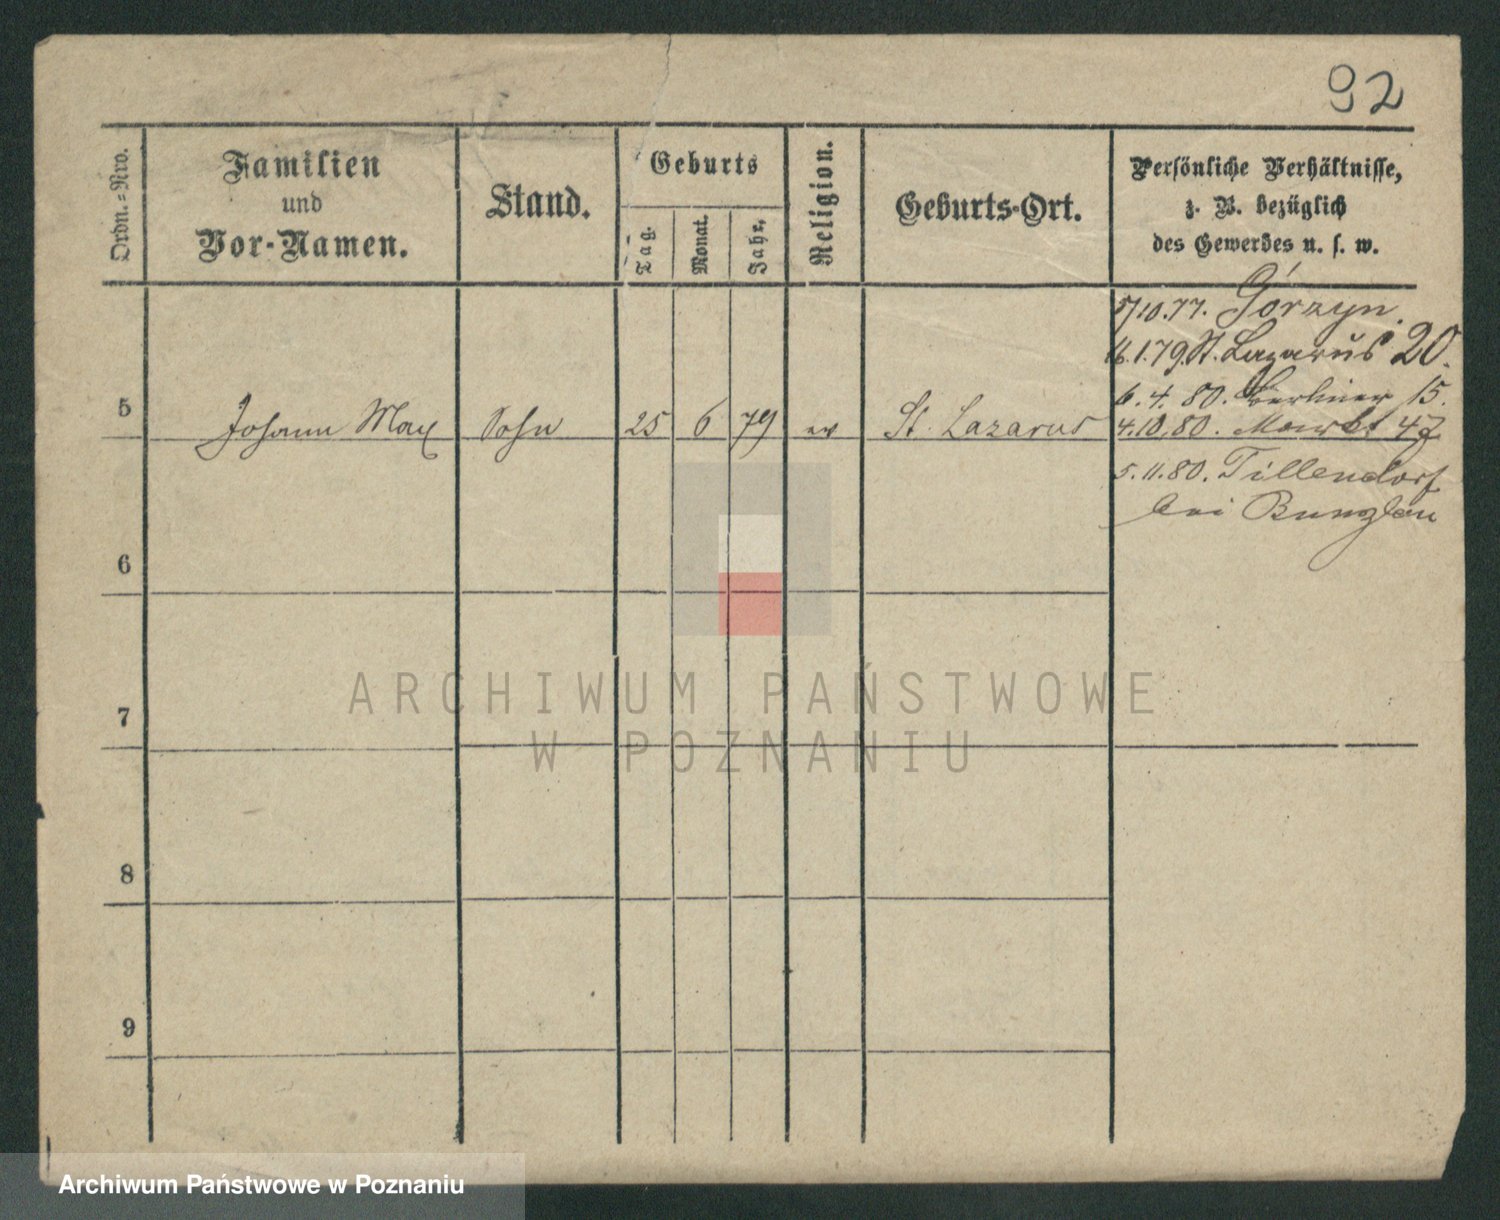 92
Ordn.-Nro.
Familien
und
Vor-Namen.
Stand.
Geburts
Tag.
Monat.
Jahr.
Religion.
Geburts-Ort.
Persönliche Verhältnisse,
z. B. bezüglich
des Gewerbes u. s. w.
5/10.77. Górzyn.
16.1.79. St. Lazarus 20.
6.4.80. Berliner 15.
5 Johann Max Sohn 25 6 79 ev St. Lazarus 4.10.80. Markt 47
5.11.80. Tillendorf
bei Bunzlau
6
7
8
9
ARCHIWUM PAŃSTWOWE
W POZNANIU
Archiwum Państwowe w Poznaniu